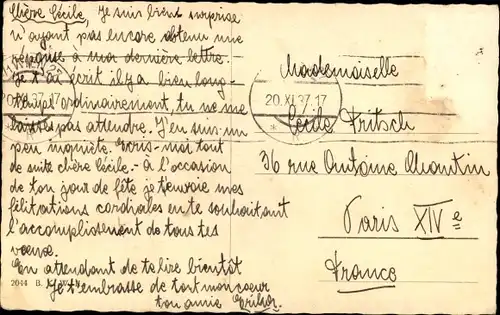 Chère Cécile, Je suis bien surprise
n'ayant pas encore obtenu une
réponse à ma dernière lettre.
Je t'ai écrit il y a bien long-
temps ordinairement, tu ne me
laisses pas attendre. J'en suis un
peu inquiète. Ecris-moi tout
de suite chère Cécile. - À l'occasion
de ton jour de fête je t'envoie mes
félicitations cordiales en te souhaitant
l'accomplissement de tous tes
voeux.
En attendant de te lire bientôt
Je t'embrasse de tout mon coeur
ton amie
2044 B.
20.XI.37.17
Mademoiselle
20.XI.37.17
Cécile Fritsch
36 rue Antoine Chantin
Paris XIVe
France